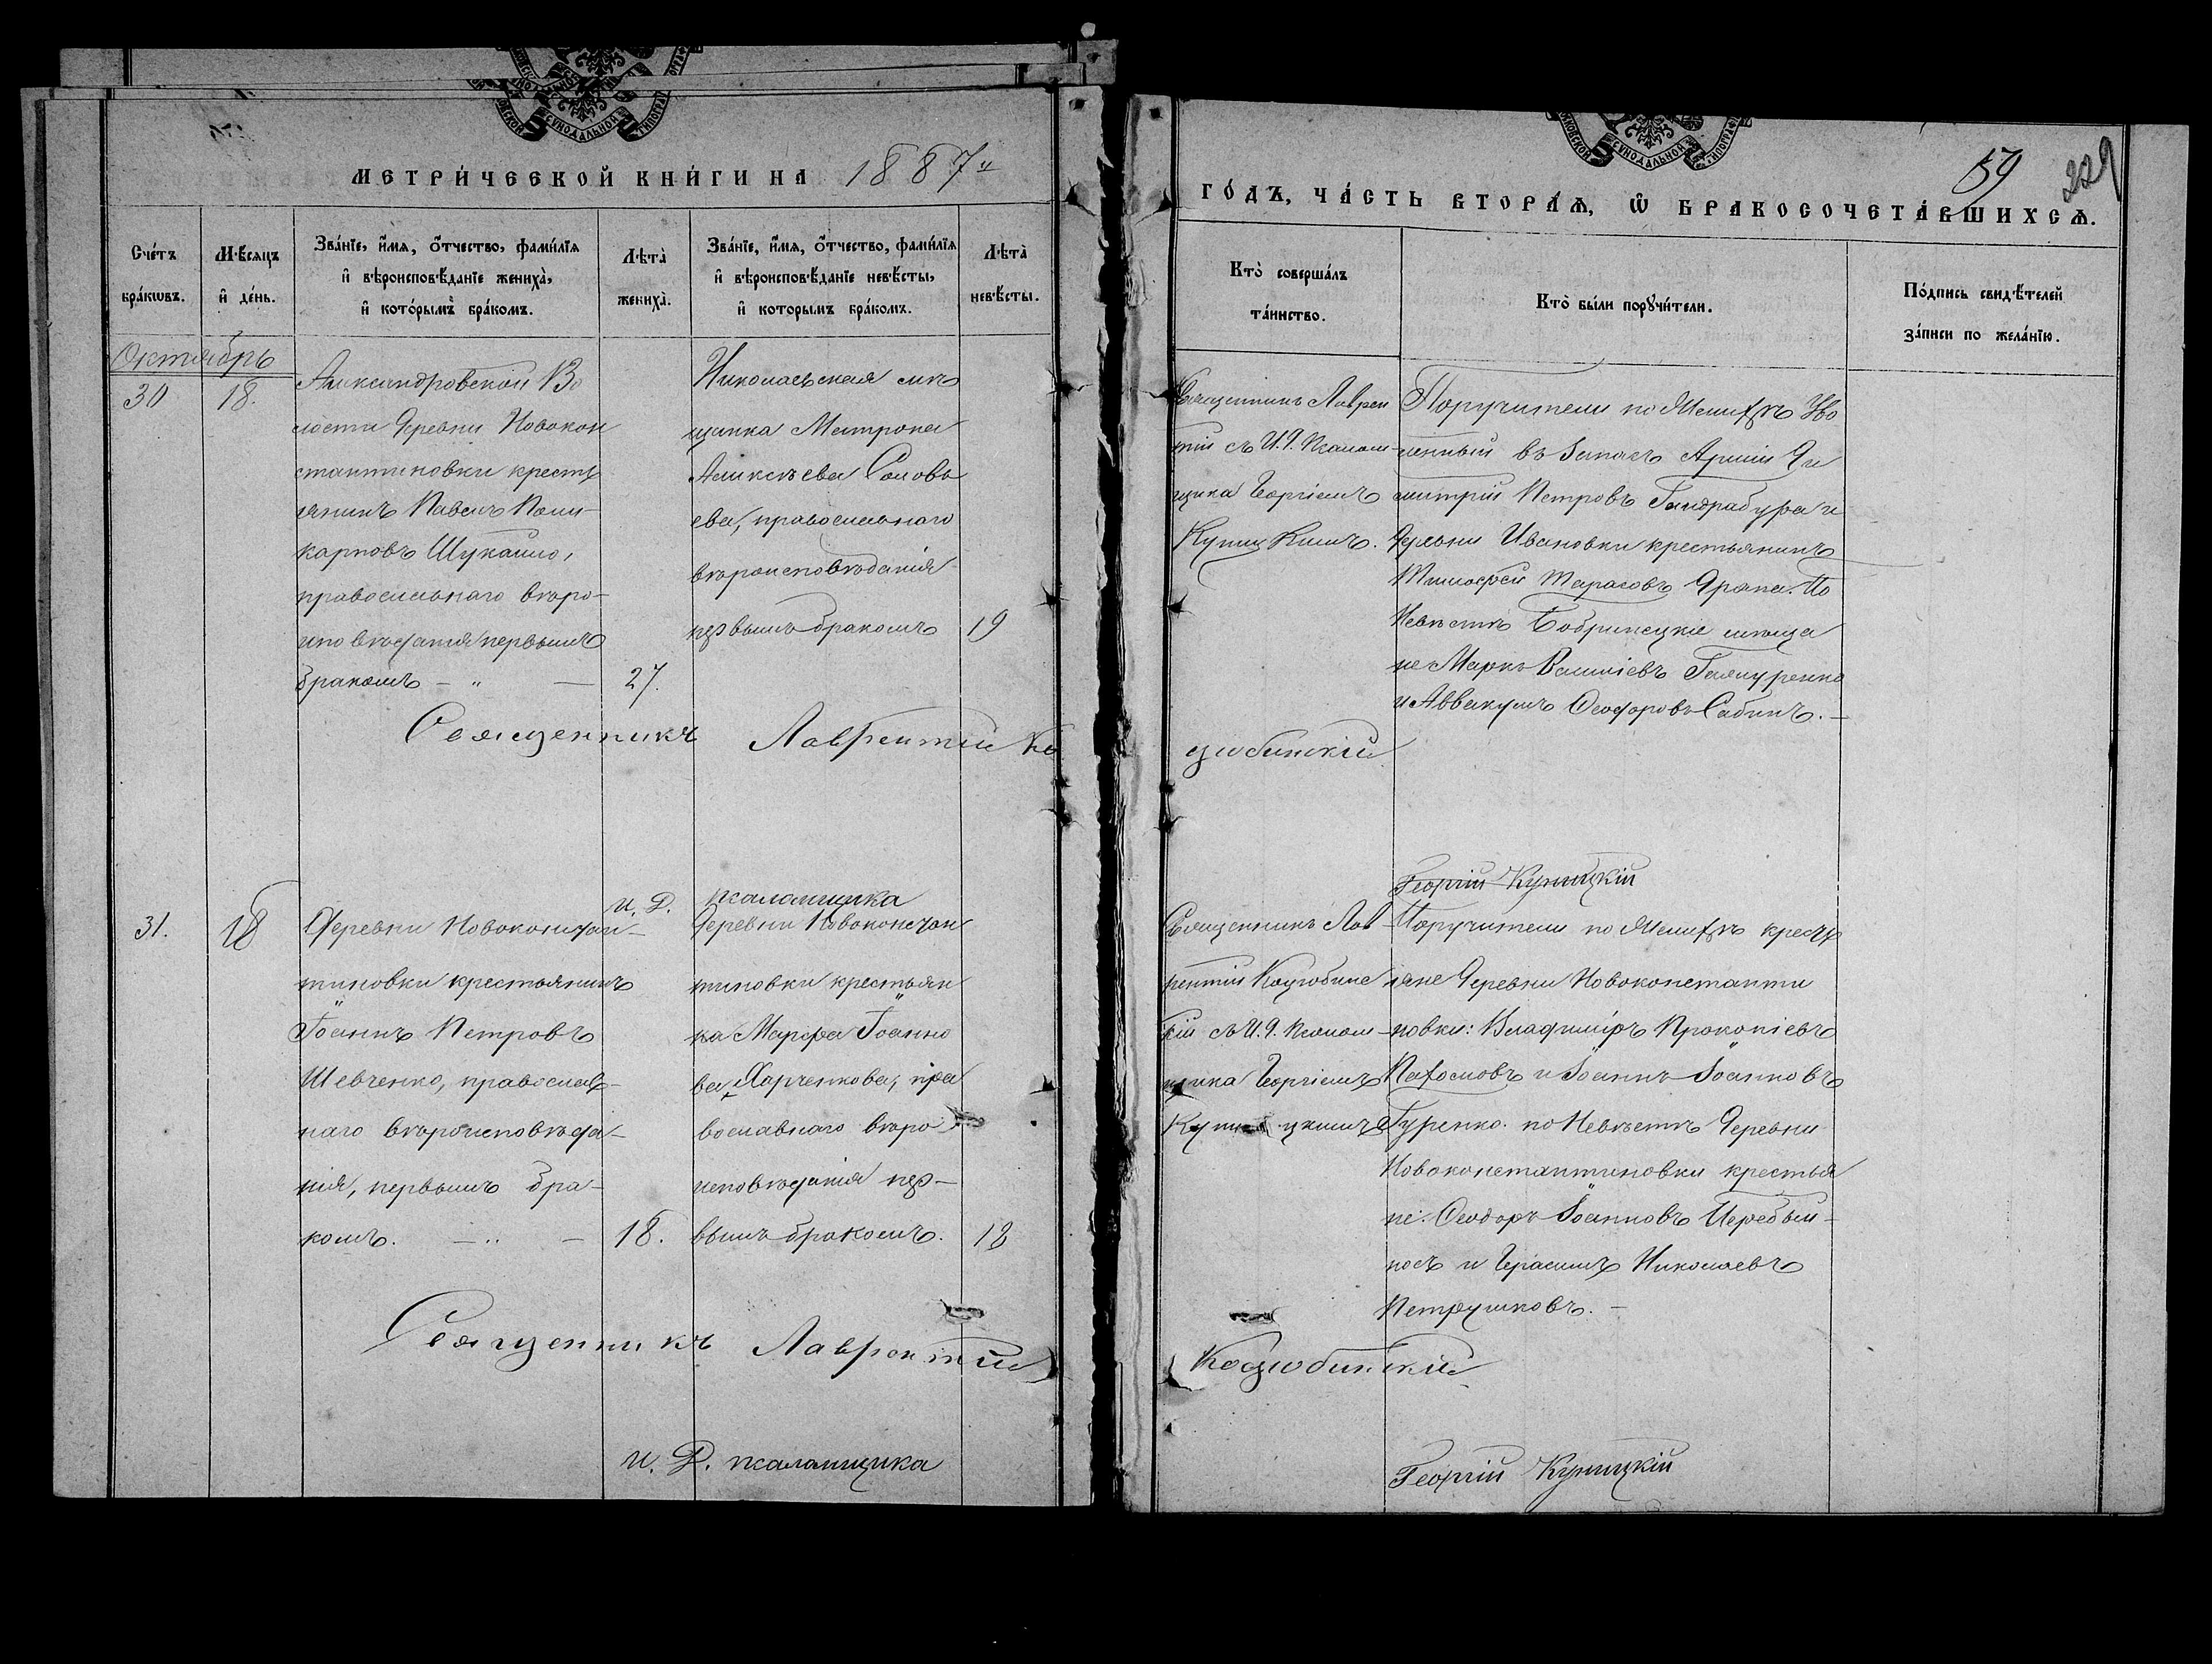 МЕТРИ́ЧЕСКОЙ КНИ́ГИ НА 1887й
ГО́ДЪ, ЧА́СТЬ ВТОРА́Ѧ, Ѡ БРАКОСОЧЕТА́ВШИХСѦ.
59 229
Сче́тъ бра́кѡвъ.
Мѣ́сяцъ и҆ де́нь.
Зва́нїе, и҆́мя, ѻ҆́тчество, фами́лїя и҆ вѣроисповѣ́данїе жениха̀, и҆ кото́рымъ бра́комъ.
Лѣ́та̀ жениха̀.
Зва́нїе, и҆́мя, ѻ҆́тчество, фами́лїя и҆ вѣроисповѣ́данїе невѣ́сты, и҆ кото́рымъ бра́комъ.
Лѣ́та̀ невѣ́сты.
Кто̀ соверша́лъ та́инство.
Кто̀ бы́ли порꙋчи́тели.
По́дпись свидѣ́телей за́писи по жела́нїю.
Октябрь
30
18.
Александровской Во
лости Деревни Новокон
стантиновки кресть
янинъ Павелъ Поли-
карповъ Шукайло,
православнаго вѣро-
исповѣданія первымъ
бракомъ — „ —
27.
Николаевская мѣ
щанка Матрона
Алексѣева Соловь
ева, православнаго
вѣроисповѣданія
первымъ бракомъ
19
Священникъ Лаврен
тій съ И. Д. Псалом-
щика Георгіемъ
Куницкимъ.
Поручители по Женихѣ Уво
ленный въ Запасъ Арміи Ди
митрій Петровъ Гандрабура и
Деревни Ивановки крестьянинъ
Тимофей Тарасовъ Драпа. По
Невѣстѣ Бобринецкіе мѣща
не Марко Василіевъ
и Аввакумъ Ѳеодоровъ Сабинъ. —
Священникъ Лаврентій Ко
цюбинскій
И. Д. псаломщика
Георгій Куницкій
31.
18
Деревни Новоконстан-
тиновки крестьянинъ
Іоаннъ Петровъ
Шевченко, православ-
наго вѣроисповѣда-
нія, первымъ бра-
комъ. — „ —
18.
Деревни Новоконстан
тиновки крестьян
ка Марфа Іоанно
ва Харченкова, пра
вославнаго вѣро
исповѣданія пер-
вымъ бракомъ.
18
Священникъ Лав-
рентій Коцюбинс
кій съ И. Д. Псалом-
щика Георгіемъ
Куницкимъ
Поручители по Женихѣ кресть
яне Деревни Новоконстанти
новки: Владиміръ Прокопіевъ
Пахомовъ и Іоаннъ Іоанновъ
Гуренко. по Невѣстѣ Деревни
Новоконстантиновки крестья
не: Ѳеодоръ Іоанновъ Перебый-
носъ и Герасимъ Николаевъ
Петрушковъ. —
Священникъ Лаврентій
Коцюбинскій
И. Д. псаломщика
Георгій Куницкій